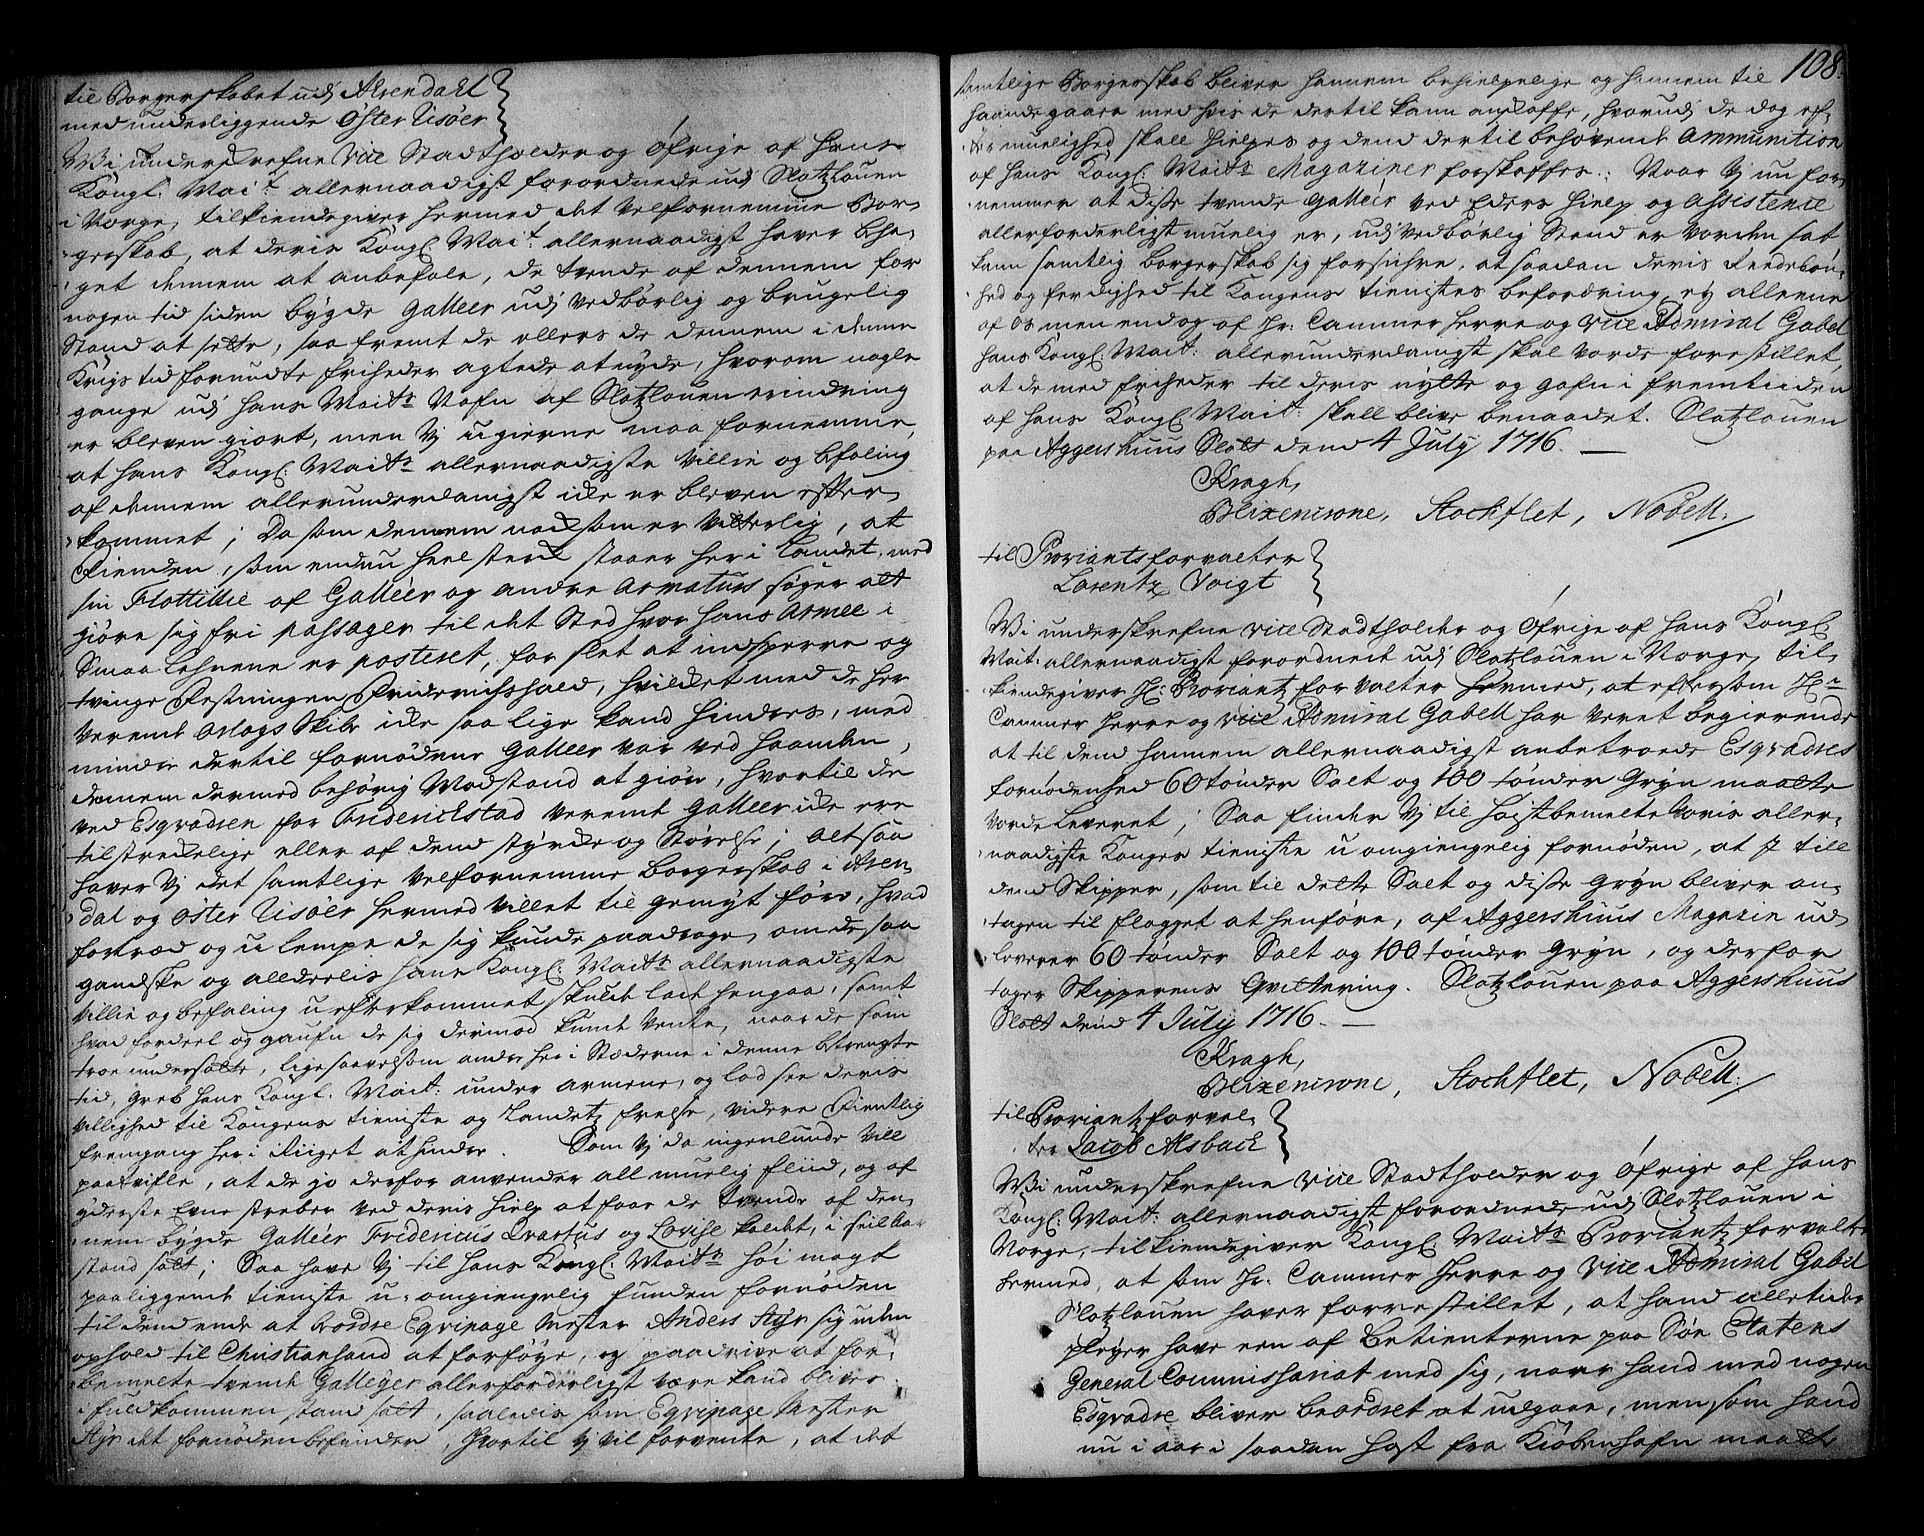 til Borgerskabet udj Arendahl
med underliggende Öster Risöer
Wi underskrefne Vice Stadtholder og Öfrige af Hans
Kongl: Mai:t allernaadigst forordnede udj Slotzlouen
i Norge, tilkiendegiver hermed det velfornemme Bor-
gerskab, at deris Kongl Mai:t allernaadigst haver bha-
get dennem at anbefale, de tvende af dennem for
nogen tid siden bygde Galleer udj vedbörlig og brugelig
Stand at sette, saa fremt de ellers de dennem i denne
Krigs tid forundte friheder agtede at nyde, hvorom nogle
gange udj hans Maits Nafn af Slotzlouen erindring
er bleven giort, men Vj ugierne maa fornemme,
at hans Kongl: Maits allernaadigste Villie og befaling
af dennem allerunderdanigst icke er bleven effter-
kommet; Da som dennem nocksom er vitterlig, at
Fienden, som endnu heel sterck staaer her i Landet, med
sin Flottille af Galleer og andre Armaturs söger alt
giöre sig fri passager til det Sted hvor hans Armee i
Smaa Lehnene er posteret, for slet at indsperre og
tvinge Festningen Friderichshald, hvilcket med de her
verende Orlogs Skibe icke saa lige kand hindres, med
mindre dertil fornödene Galleer var ved haanden,
dennem dermed behörig Modstand at giöre, hvortil de
ved Esqvadren for Fridericstad verende Galleer icke ere
tilstreckelige eller af dend styrcke og Störelse; altsaa
haver Vj det samtlige velfornemme borgerskab i Aren-
dal og Öster Risöer hermed villet til gemyt före, hvad
fortræd og ulempe de sig kunde paadrage, om de saa
gandske og alldeelis hans Kongl: Maits allernaadigste
Villie og befaling uefterkommet skulde lade hengaa, samt
hvad fordeel og gaufn de sig dermed kunde vente, naar de som
troe undersatte, ligesaavelsom andre her i Stæderne i denne btrengte
tid, greb hans Kongl. Mait: under armene, og lod see deris
villighed til Kongens tieniste og Landetz frelse, videre Fientlig
fremgang her i Riiget at hindre. Som Vj da ingenlunde vill
paatvifle, at de jo derfor anvender all muelig fliid, og af
yderste Evne streber ved deris hielp at faae de tvende af den-
nem bygde Galleer Fridericus Qvartus og Lovise kaldet, i seilbar
stand satt; Saa have Vj til hans Kongl: Maits höi magt
paaliggende tieniste u-omgiengelig funden fornöden
til dend ende at beordre Eqvipage Mester Anders Styr sig uden
ophold til Christiansand at forföye, og paadrive at for-
bemelte tvende Galleyer allerforderligst være kand blives
i fuldkommen stand satt, saaledis som Eqvipage Mester
Styr det fornöden befinder, hvortil Vj vil forvente, at det
108.
samtlige Borgerskab bliver hannem behielpelige og hannem til
haande gaar med hvis de dertil kann anskaffe, hvorudj de dog ef-
ter muelighed skall hielpes og dend dertil behövende Ammunition
af hans Kongl: Maits Magaziner forskaffes. Naar Vj nu for-
nemmer at disse tvende Galleer ved Eders hielp og assistence
allerforderligst muelig er, udj vedbörlig Stand er vorden sat
kann samtlig borgerskab sig forsichre, at saadan deris Reedebon-
hed og ferdighed til Kongens tienistes befordring, ey alleene
af Os men endog af Hr: Cammer Herre og Vice Admiral Gabel
hans Kongl: Mait: allerunderdanigst skal vorde forestillet,
at de med friheder til deris nytte og gafn i fremtiiden
af Hans Kongl Mait: skall blive benaadet. Slotzlouen
paa Aggershuus Slott dend 4 July 1716.
Kragh,
Blixencrone, Stockflet, Nobell.
til Proviantsforvalter
Lorentz Voigt
Wi underskrefne Vice Stadtholder og Öfrige af Hans Kongl
Mait: allernaadigst forordnede udj Slotzlouen i Norge, til-
kiendegiver Hr: Proviantz forvalter hermed, at eftersom Hr
Cammer Herre og Vice Admiral Gabell har veret begierende
at til dend hannem allernaadigst anbetroede Esqvadres
fornödenhed 60 tönder Salt og 100 tönder Gryn maatte
vorde Leveret; Saa finder Vj til höistbemelte Voris aller-
naadigste Konges tieniste u omgiengelig fornöden, at I till
dend Skipper, som til dette Salt og disse Gryn bliver an-
tagen til flagget at henföre, af Aggershuus Magazin ud-
leverer 60 tönder Salt og 100 tönder Gryn, og derfor
tager Skipperens Qvittering. Slotzlouen paa Aggershuus
Slott dend 4 July 1716.
Kragh,
Blixencrone, Stockflet, Nobell:
til Proviantzforval-
ter Jacob Alsbach
Wi underskrefne Vice Stadtholder og Öfrige af Hans
Kongl: Mait: allernaadigst forordnede udj Slotzlouen i
Norge, tilkiendegiver Kongl: Maits Proviantz forvalter
hermed, at som Hr: Cammer Herre og Vice Admiral Gabel
Slotzlouen haver forrestillet, at hand alletider
pleyer have een af Betienterne paa Söe Etatens
General Commissariat med sig, naar hand med nogen
Esqvadre bliver beordret at udgaae, men som hand
nu i aar i saadan hast fra Kiöbenhafn maatte